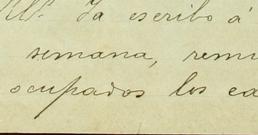 Ya escribo á
semana, remi
ocupados los ca